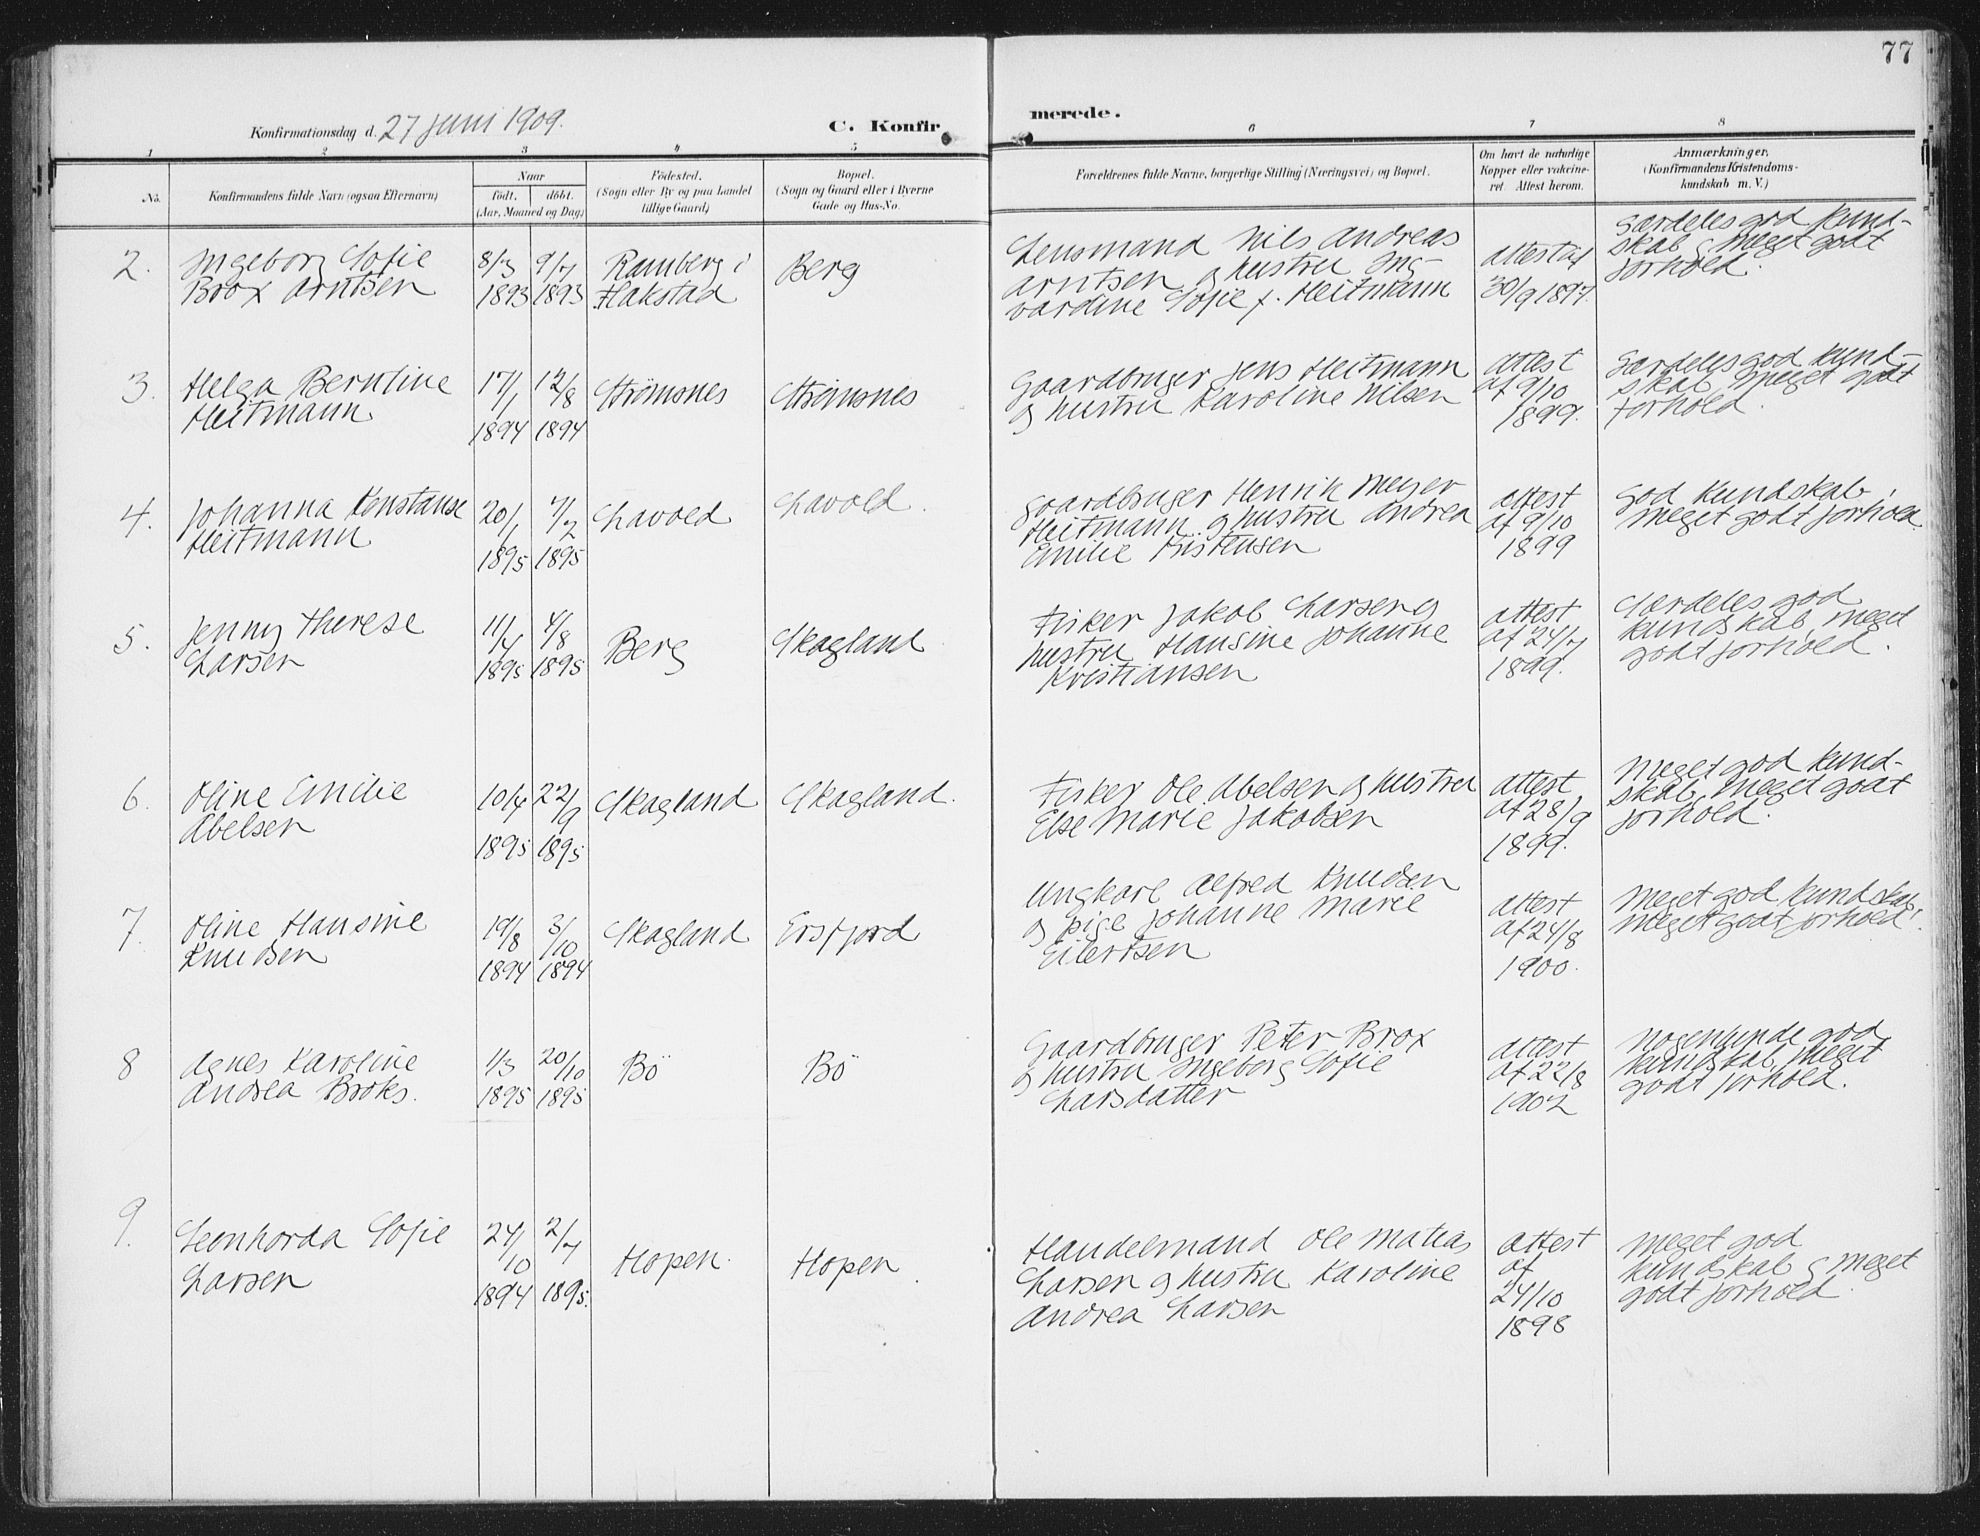 77
Konfirmationsdag d. 27 juni 1909.
C. Konfirmerede.
1 2 3 4 5 6 7 8
No.
Konfirmandens fulde Navn (ogsaa Efternavn)
Naar
født. døbt.
(Aar, Maaned og Dag)
Fødested.
(Sogn eller By og paa Landet
tillige Gaard)
Bopæl.
(Sogn og Gaard eller i Byerne
Gade og Hus-No.
Forældrenes fulde Navne, borgerlige Stilling (Næringsvei) og Bopæl.
Om havt de naturlige
Kopper eller vakcine-
ret. Attest herom.
Anmærkninger.
(Konfirmandens Kristendoms-
kundskab m. V.)
2. Ingeborg Sofie
Brox Arntsen
8/3
1893
9/7
1893
Ramberg i
Hakstad
Berg
Lensmand Nils Andreas
Arntsen og hustru Ing-
vardine Sofie f. Heitmann
attest af
30/9 1897.
Særdeles god kund-
skab, meget godt
forhold.
3. Helga Berntine
Heitmann
17/1
1894
12/8
1894
Strömsnes
Strömsnes
Gaardbruger Jens Heitmann
og hustru Karoline Nilsen
attest
af 9/10
1899.
Særdeles god kund-
skab, meget godt
forhold.
4. Johanna Konstanse
Heitmann
20/1
1895
7/2
1895
Lavold
Lavold.
Gaardbruger Henrik Meyer
Heitmann og hustru Andrea
Emilie Kristensen
attest
af 9/10
1899
God kundskab,
meget godt forhold.
5. Jenny Therese
Larsen
11/4
1895
4/8
1895
Berg
Skagland
Fisker Jakob Larsen og
hustru Hansine Johanne
Kristiansen
attest
af 24/7
1899.
Særdeles god
kundskab, meget
godt forhold.
6. Oline Emilie
Abelsen
10/4
1895
22/9
1895
Skagland
Skagland.
Fisker Ole Abelsen og hustru
Else Marie Jakobsen
attest
af 28/9
1899.
Meget god kund-
skab, meget godt
forhold.
7. Oline Hansine
Knudsen
19/8
1894
3/10
1894
Skagland
Ersfjord
Ungkarl Alfred Knudsen
og pige Johanne Marie
Eilertsen
attest
af 24/8
1900.
Meget god kundskab,
meget godt forhold.
8 Agnes Karoline
Andrea Broks.
1/3
1895
20/10
1895
Bö
Bö
Gaardbruger Peter Brox
og hustru Ingeborg Sofie
Larsdatter
attest
af 22/8
1902
Nogenlunde god
kundskab, meget
godt forhold.
9. Leonharda Sofie
Larsen
24/10
1894
2/7
1895.
Hopen.
Hopen.
Handelmand Ole Matias
Larsen og hustru Karoline
Andrea Larsen
attest
af
24/10
1898
Meget god
kundskab og meget
godt forhold.